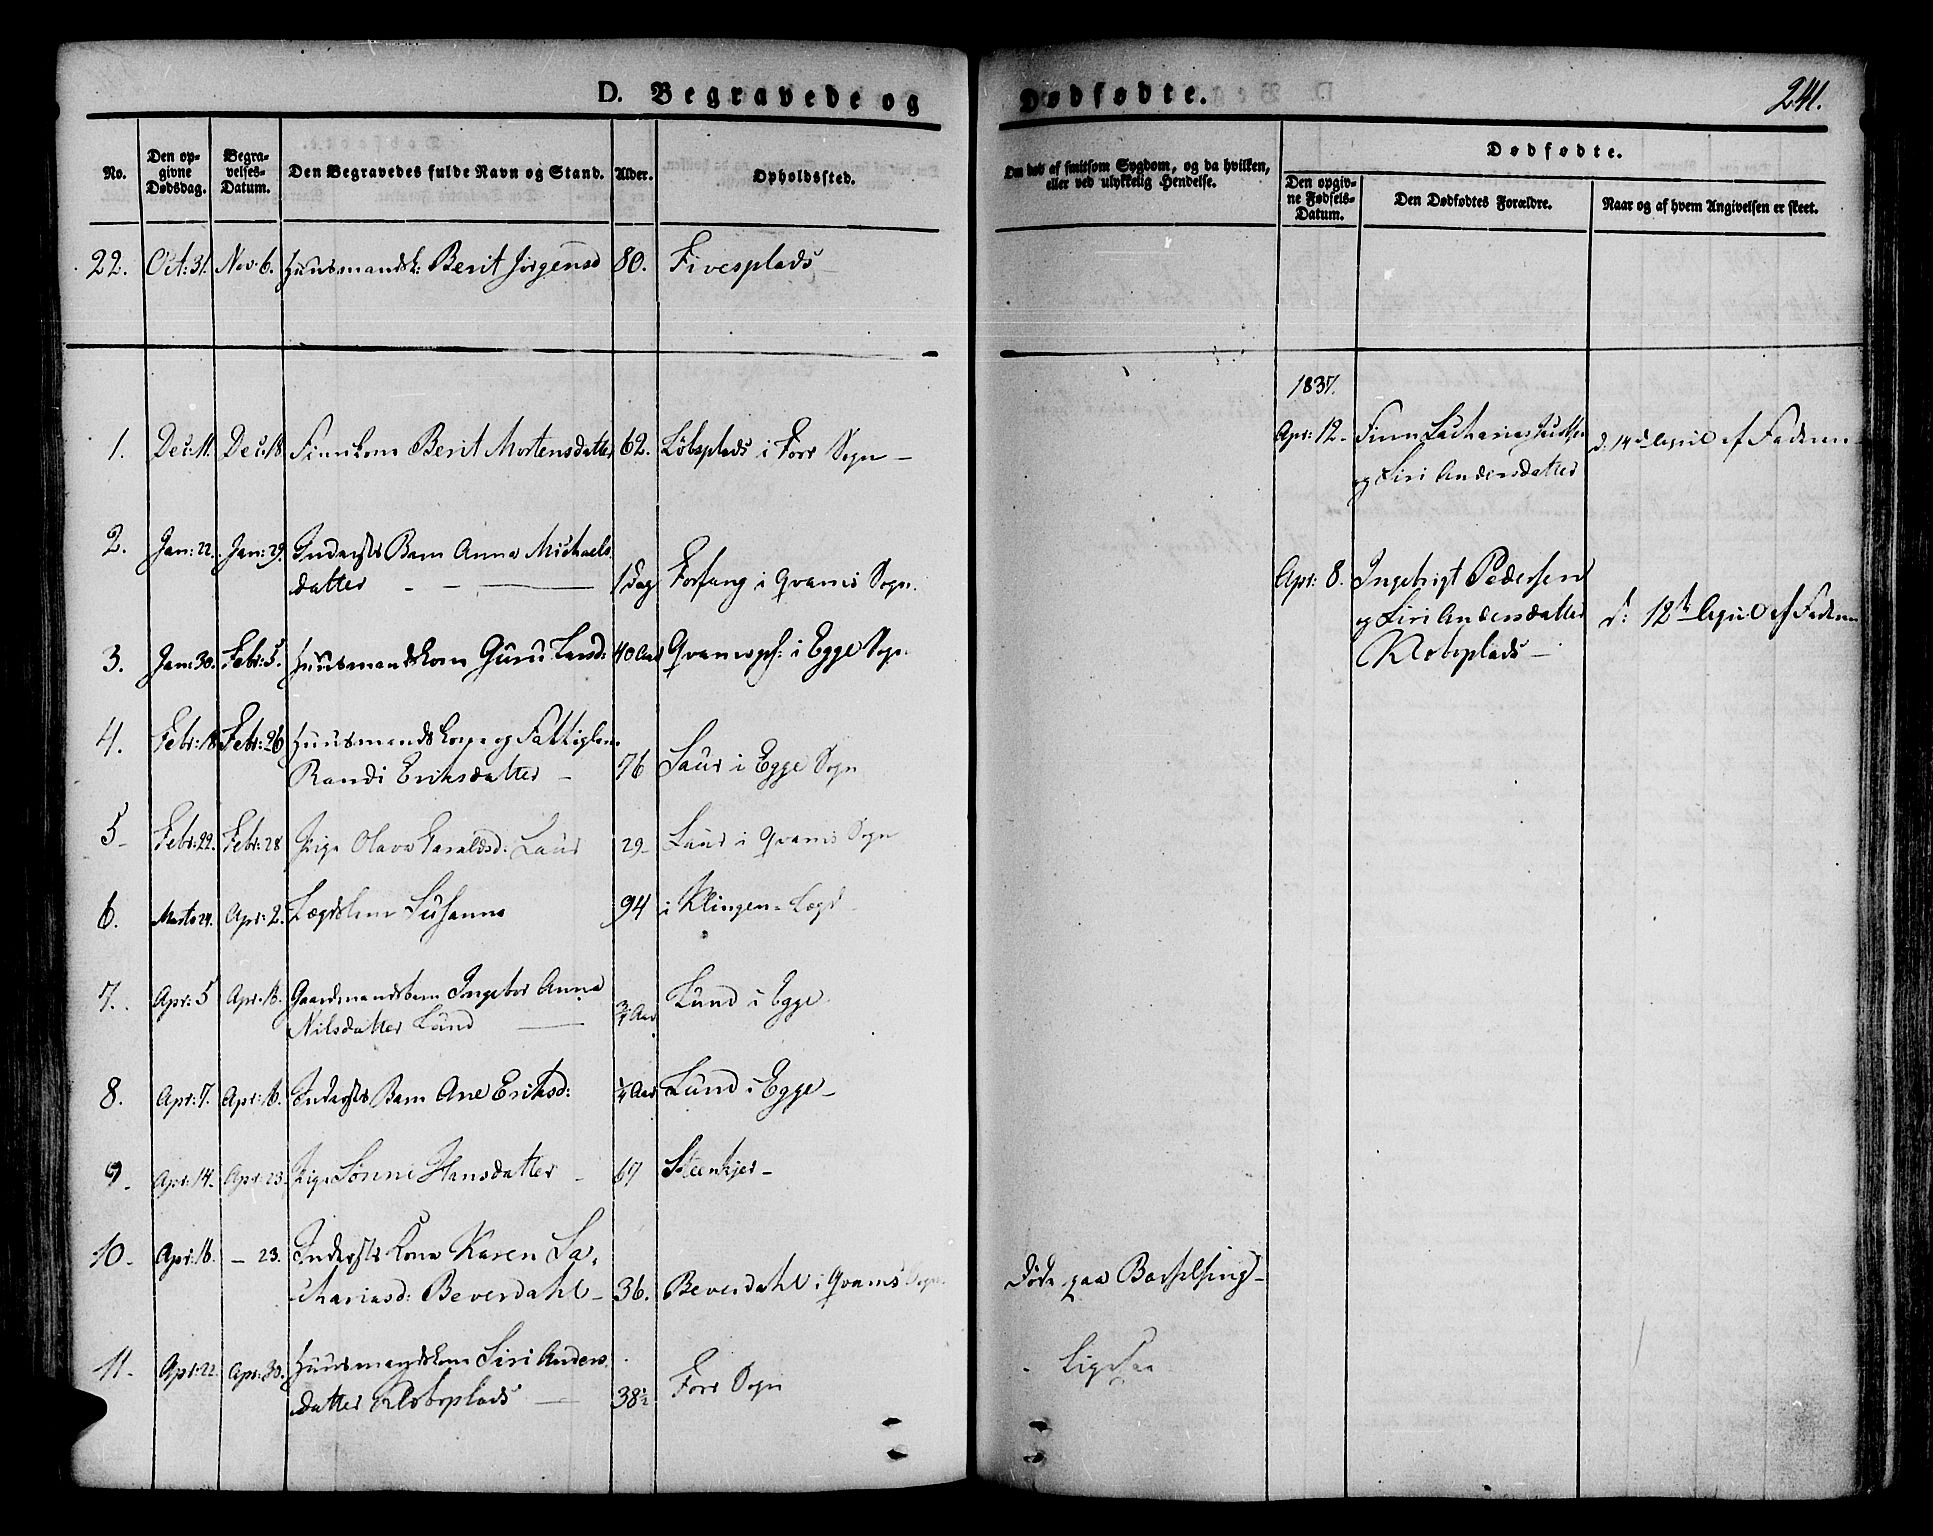 D. Begravede og
Dødfødte.
241.
No.
Den opgivne Dødsdag.
Begravelses-Datum.
Den Begravedes fulde Navn og Stand.
Alder.
Opholdssted.
Om død af smitsom Sygdom, og da hvilken, eller ved ulykkelig Hendelse.
Dødfødte.
Den opgivne Fødsels-Datum.
Den Dødfødtes Forældre.
Naar og af hvem Angivelsen er skeet.
22. Oct: 31. Nov: 6. Huusmandsk: Berit Jørgensd 80. Fivesplads
1837.
1. Dec: 11. Dec: 18. Finnkone Berit Mortensdatter 62. i Foss Sogn
Apr: 12. Finn Zacharias
og Siri Andersdatter
d. 14de April af Faderen
2. Jan: 22. Jan: 29. Inderste Barn Anna Michaels
datter 1 Dag Forfang i Qvams Sogn.
Apr: 8. Ingebrigt Pedersen
og Siri Andersdatter
Klosplads
d: 12te April af Faderen
3. Jan: 30. Febr: 5. Huusmandskone Guru Larsd: 40 Aar Qvamspl: i Egge Sogn
4. Febr: 18 Febr: 26 Huusmandskone og Fattiglem
Randi Eriksdatter 76 Saur i Egge Sogn
5 Febr: 22. Febr: 28 Pige Olava Haraldsd: Laur 29 Laur i Qvams Sogn
6. Marts 24. Apr: 2. Lægdslem Susanna 94 i Klingen Lægd
7. Apr: 5 Apr: 16. Gaardmandsbarn Ingebor Anna
Nilsdatter Lund 3/4 Aar Lund i Egge
8. Apr: 7. Apr: 16. Inderste Barn Ane Eriksd: 1/4 Aar Lund i Egge
9 Apr: 14. Apr: 23. Pige Sønni Hansdatter 67 Steenkjer
10. Apr: 16. – 23. Inderste Kone Karen Za-
chariasd: Beverdahl 36. Beverdahl i Qvams Sogn
Døde paa Barselseng
11. Apr: 22. Apr: 30. Huusmandskone Siri Anders-
datter Klosplads 38½ Foss Sogn
Ligesaa